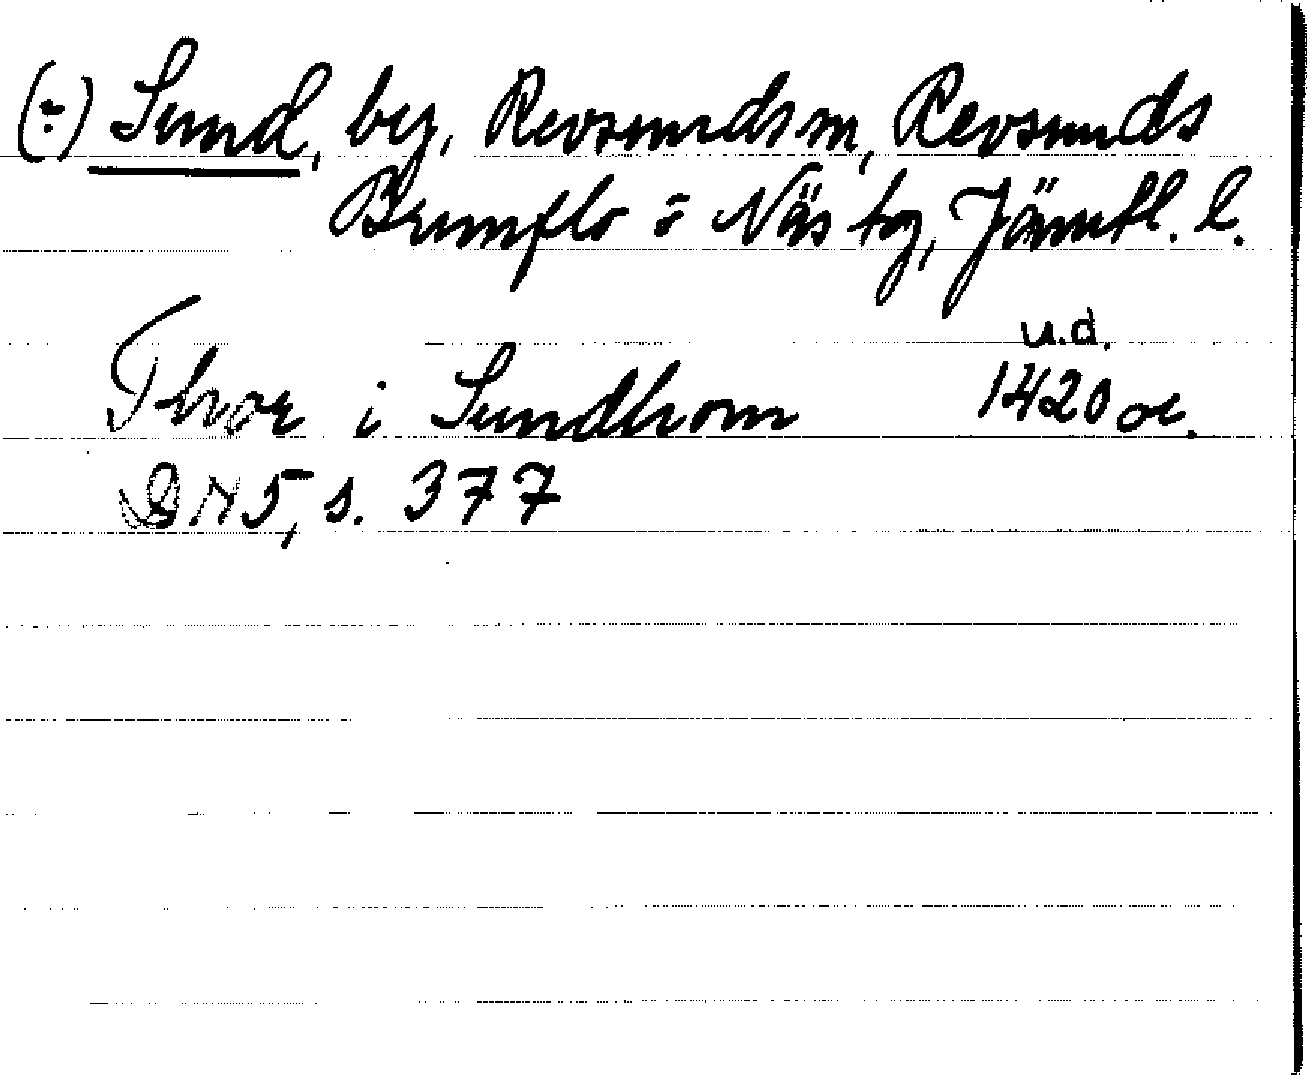 (÷) Sund, by, Revsunds sn, Revsunds
Brunflo o Näs tg, Jämtl. l.
u.d.
Thor i Sundhom 1420 or.
DN 5, s. 377